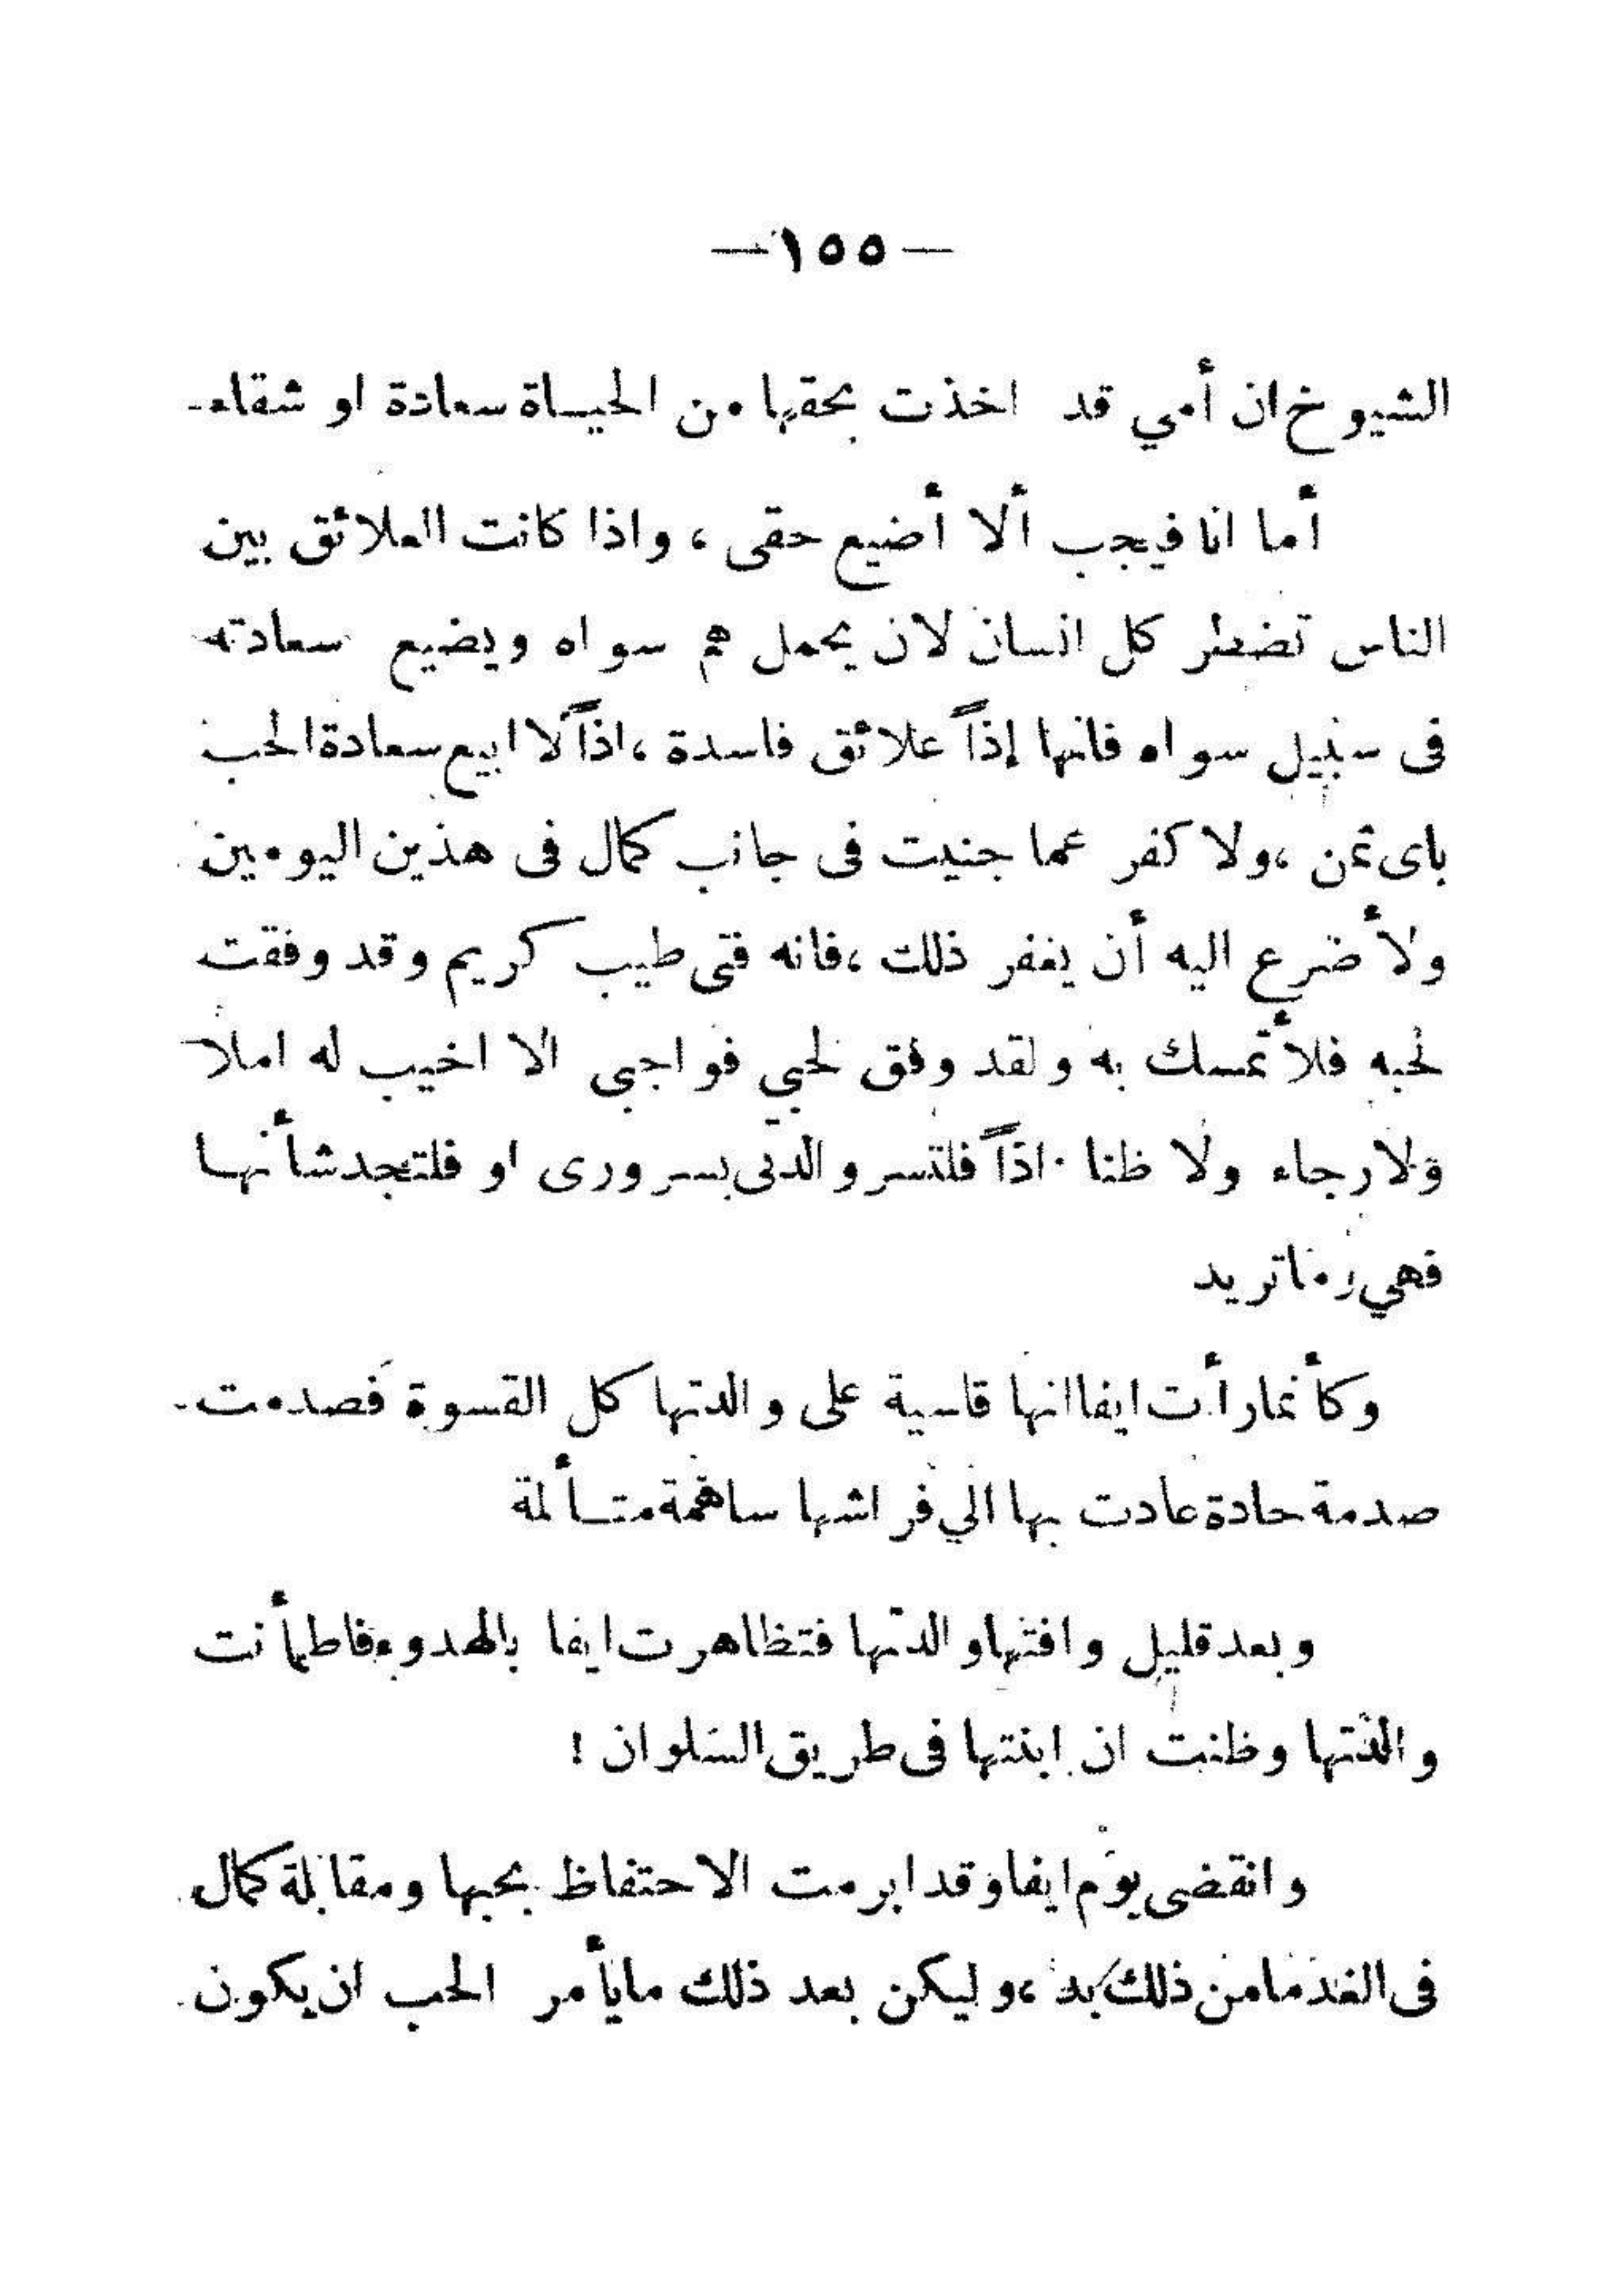 — ١٥٥ —
الشيوخ ان أمي قد اخذت بحقها من الحياة سعادة او شقاء
أما انا فيجب ألا أضيع حقى ، واذا كانت العلائق بين
الناس تضطر كل انسان لان يحمل هم سواه ويضيع سعادته
فى سبيل سواه فانها إذاً علائق فاسدة ، اذاً لا ابيع سعادة الحب
باى ثمن ، ولا كفر عما جنيت فى جانب كمال فى هذين اليومين
ولأضرع اليه أن يغفر ذلك ، فانه فتى طيب كريم وقد وفقت
لحبه فلأتمسك به ولقد وفق لحبي فواجبى الا اخيب له املا
ولا رجاء ولا ظنا . اذاً فلتسر والدتى بسرورى او فلتجد شأنها
فهي وما تريد
وكأنما رأت ايفا انها قاسية على والدتها كل القسوة فصدمت
صدمة حادة عادت بها الي فراشها ساهمة متألمة
وبعد قليل وافتها والدتها فتظاهرت ايفا بالهدوء فاطمأنت
والدتها وظنت ان ابنتها فى طريق السلوان !
وانقضى يوم ايفا وقد ابرمت الاحتفاظ بحبها ومقابلة كمال
فى الغد مامن ذلك بد ، وليكن بعد ذلك مايأمر الحب ان يكون